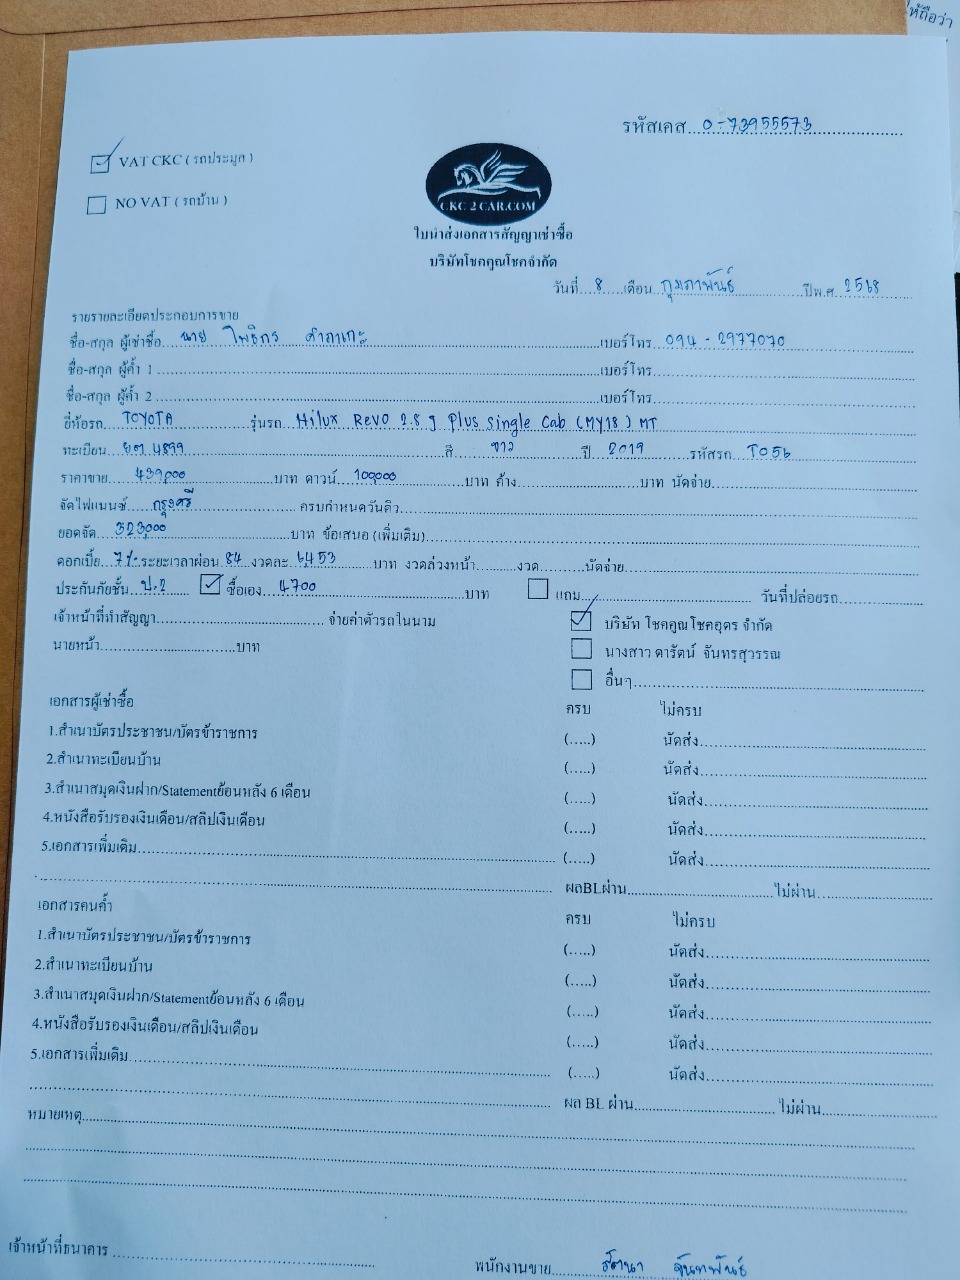 ให้ถือว่า
รหัสเคส 0-73955573
☑ VAT CKC ( รถประมูล )
☐ NO VAT ( รถบ้าน )
CKC 2 CAR.COM
ใบนำส่งเอกสารสัญญาเช่าซื้อ
บริษัทโชคคูณโชคจำกัด
วันที่ 8 เดือน กุมภาพันธ์ ปีพ.ศ. 2568
รายรายละเอียดประกอบการขาย
ชื่อ-สกุล ผู้เช่าซื้อ นาย โพธิกร เบอร์โทร 094-2977070
ชื่อ-สกุล ผู้ค้ำ 1 เบอร์โทร
ชื่อ-สกุล ผู้ค้ำ 2 เบอร์โทร
ยี่ห้อรถ TOYOTA รุ่นรถ Hilux Revo 2.8 J Plus Single Cab (MY18) MT
ทะเบียน 4899 สี ขาว ปี 2019 รหัสรถ T056
ราคาขาย 439,000 บาท ดาวน์ 109,000 บาท ค้าง บาท นัดจ่าย
จัดไฟแนนซ์ กรุงศรี ครบกำหนดวันคิว
ยอดจัด 323,000 บาท ข้อเสนอ (เพิ่มเติม)
ดอกเบี้ย 7% ระยะเวลาผ่อน 84 งวดละ 6453 บาท งวดล่วงหน้า งวด นัดจ่าย
ประกันภัยชั้น ป.2 ☑ ซื้อเอง 4700 บาท ☐ แถม วันที่ปล่อยรถ
เจ้าหน้าที่ทำสัญญา จ่ายค่าตัวรถในนาม ☑ บริษัท โชคคูณโชคอุดร จำกัด
นายหน้า บาท ☐ นางสาว ดารัตน์ จันทรสุวรรณ
☐ อื่นๆ
เอกสารผู้เช่าซื้อ ครบ ไม่ครบ
1.สำเนาบัตรประชาชน/บัตรข้าราชการ (.....) นัดส่ง
2.สำเนาทะเบียนบ้าน (.....) นัดส่ง
3.สำเนาสมุดเงินฝาก/Statementย้อนหลัง 6 เดือน (.....) นัดส่ง
4.หนังสือรับรองเงินเดือน/สลิปเงินเดือน (.....) นัดส่ง
5.เอกสารเพิ่มเติม (.....) นัดส่ง
ผลBLผ่าน ไม่ผ่าน
เอกสารคนค้ำ ครบ ไม่ครบ
1.สำเนาบัตรประชาชน/บัตรข้าราชการ (.....) นัดส่ง
2.สำเนาทะเบียนบ้าน (.....) นัดส่ง
3.สำเนาสมุดเงินฝาก/Statementย้อนหลัง 6 เดือน (.....) นัดส่ง
4.หนังสือรับรองเงินเดือน/สลิปเงินเดือน (.....) นัดส่ง
5.เอกสารเพิ่มเติม (.....) นัดส่ง
ผล BL ผ่าน ไม่ผ่าน
หมายเหตุ
เจ้าหน้าที่ธนาคาร
พนักงานขาย รัตนา จันทพันธ์